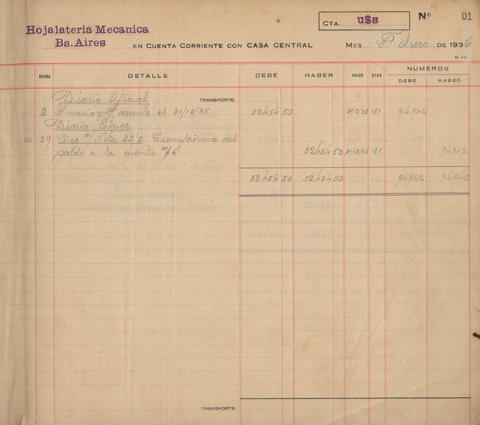 Hojalateria Mecanica
Bs. Aires
EN CUENTA CORRIENTE CON CASA CENTRAL
CTA. u$s
Nº 01
MES Febrero DE 1936
FECHA DETALLE DEBE HABER VALOR DIAS NUMEROS
DEBE HABER
Diario Oficial TRANSPORTE:
2 al 31/12/35 52454 50 181 94942
Diario
10 29 Nota 22 Transferencia del
saldo a la cuenta 52454 50 181 94942
52454 50 52454 50 94942 94942
TRANSPORTE: